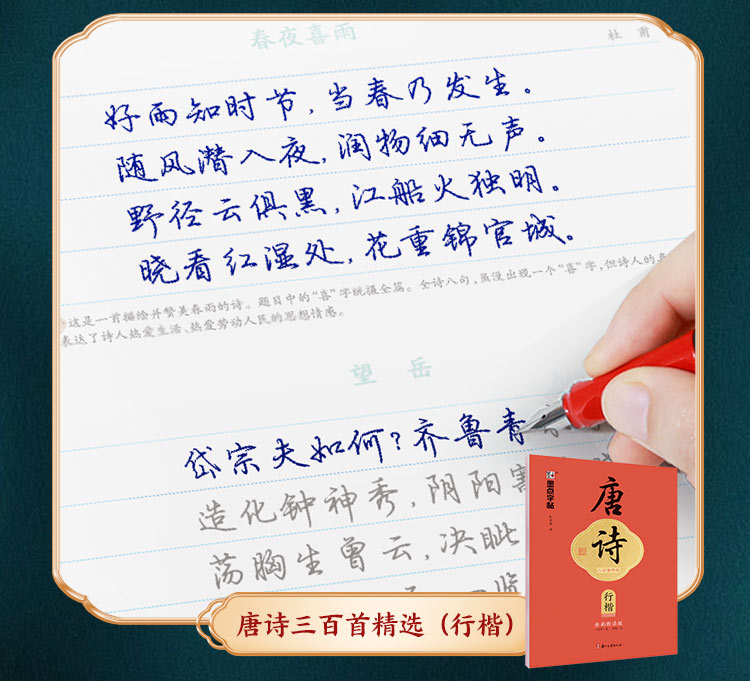 春夜喜雨
杜 甫
好雨知时节，当春乃发生。
随风潜入夜，润物细无声。
野径云俱黑，江船火独明。
晓看红湿处，花重锦官城。
这是一首描绘并赞美春雨的诗。题目中的“喜”字统摄全篇。全诗八句，虽没出现一个“喜”字，但诗人的喜
表达了诗人热爱生活、热爱劳动人民的思想情感。
望 岳
岱宗夫如何？齐鲁青
造化钟神秀，阴阳割
荡胸生曾云，决眦
览
墨点字帖
唐诗
行楷
唐诗三百首精选（行楷）